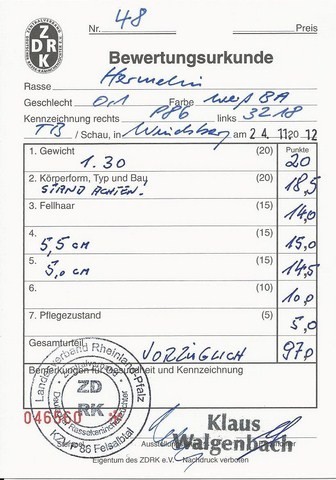 Nr. 48 Preis
ZDRK
Bewertungsurkunde
Rasse Hermelin
Geschlecht 0.1 Farbe weiß BA
Kennzeichnung rechts P86 links 3218
TB / Schau, in am 24. 11. 20 12
Punkte
1. Gewicht (20) 1.30 20
2. Körperform, Typ und Bau (20) 18,5
STAND ACHTEN!
3. Fellhaar (15) 14,0
4. (15) 5,5 cm 15,0
5. (15) 5,0 cm 14,5
6. (10) 10,0
7. Pflegezustand (5) 5,0
Gesamturteil VORZÜGLICH 97,0
Bemerkungen für Gesundheit und Kennzeichnung
Landesverband Rheinland-Pfalz
ZDRK
Deutscher Rassekaninchenzüchter
KZV P 86 Felsalbtal
046660
Klaus
Walgenbach
Eigentum des ZDRK e.V. Nachdruck verboten